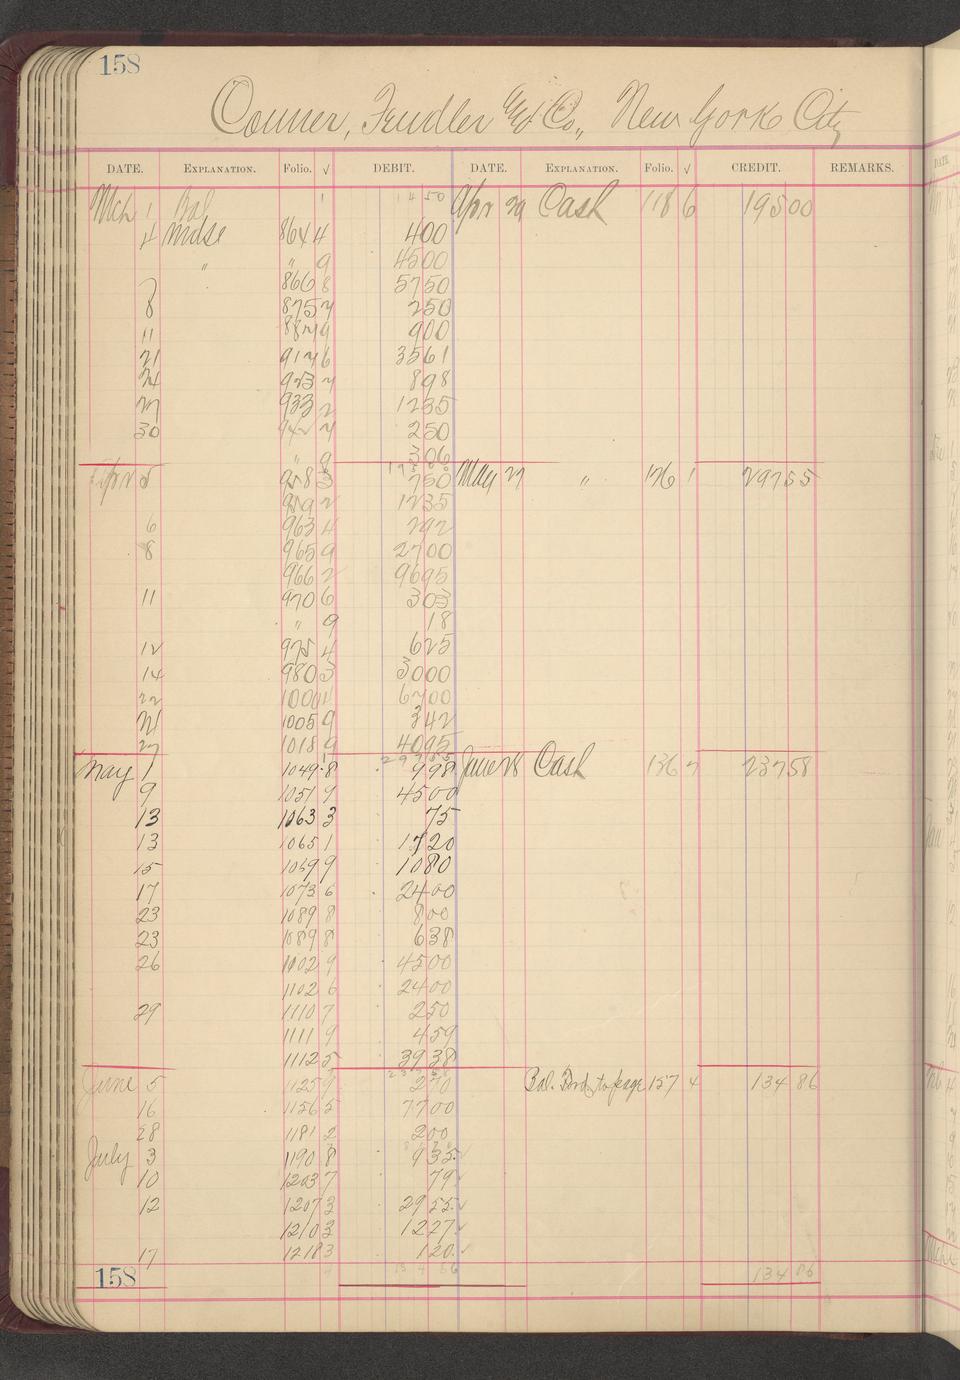 158
Conner, Fendler & Co., New York City
DATE. EXPLANATION. Folio. √ DEBIT. DATE. EXPLANATION. Folio. √ CREDIT. REMARKS.
Mch 1 Bal 1 14 50 Apr 29 Cash 118 6 195 00
4 Mdse 864 4 4 00
" " 9 45 00
7 866 8 57 50
8 875 7 2 50
11 887 9 9 00
21 917 6 35 61
24 923 7 8 98
27 933 2 12 35
30 942 7 2 50
" 9 3 06
Apr 5 958 3 7 50 May 27 " 126 1 297 55
959 2 12 35
6 963 4 2 92
8 965 9 27 00
966 2 96 95
11 970 6 3 03
" 9 18
12 975 4 6 25
14 980 3 30 00
22 1000 4 67 00
24 1005 9 3 42
27 1018 9 40 95
297 55
May 1 1049 8 9 98 June 28 Cash 136 7 237 58
9 1051 9 45 00
13 1063 3 75
13 1065 1 17 20
15 1069 9 10 80
17 1073 6 24 00
23 1089 8 8 00
23 1089 8 6 38
26 1102 9 45 00
1102 6 24 00
29 1110 7 2 50
1111 9 4 59
1112 5 39 38
237 58
June 5 1125 9 2 70 Bal. Frd, to page 157 4 134 86
16 1156 5 77 00
28 1181 2 2 00
July 3 1190 8 9 35 √
10 1203 7 79 √
12 1207 3 29 55 √
1210 3 12 27 √
17 1218 3 1 20 √
158 134 86 134 86